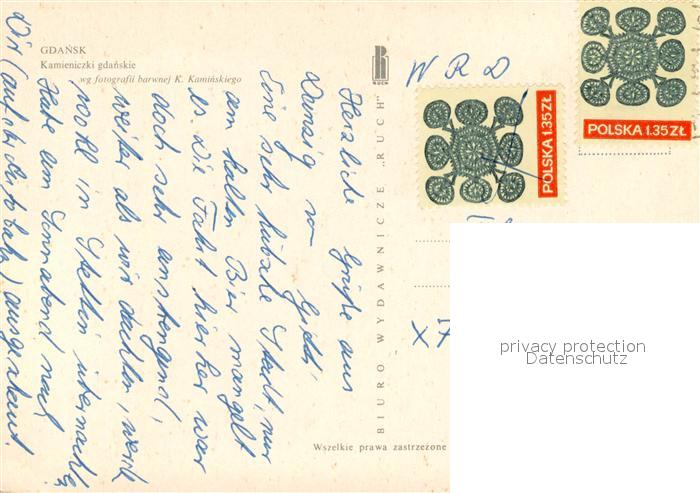 GDAŃSK
Kamieniczki gdańskie
wg fotografii barwnej K. Kamińskiego
RUCH
BIURO WYDAWNICZE „RUCH”
Wszelkie prawa zastrzeżone
POLSKA 1.35 ZŁ
POLSKA 1.35 ZŁ
W R D
Herzliche Grüße aus
Danzig v.
Eine sehr hübsche Stadt, nur
am kalten Bier mangelt
es. Die Fahrt hierher war
doch sehr anstrengend,
weiter als wir dachten, werde
wohl in Stettin
Hatte am Sonnabend nach
Dir
privacy protection
Datenschutz